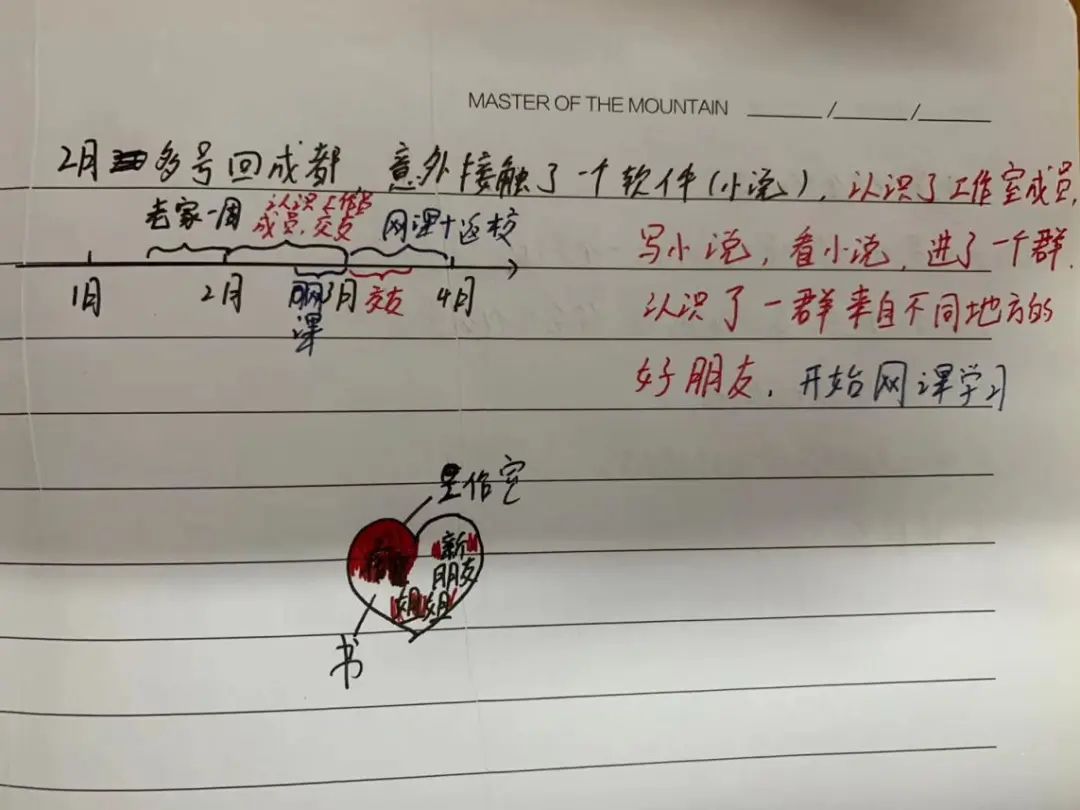 MASTER OF THE MOUNTAIN ___/___/___
2月 多号回成都,意外接触了一个软件(小说),认识了工作室成员,
写小说,看小说,进了一个群.
认识了一群来自不同地方的
好朋友,开始网课学习
老家一周
认识工作室
成员,交友
网课+返校
1月 2月 3月 交友 4月
网
课
工作室
新
朋友
书